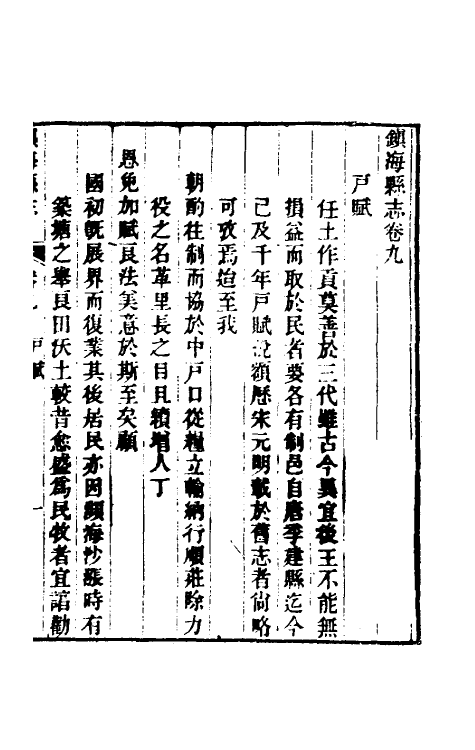 鎮海縣志卷九
戶賦
任土作貢莫善於三代雖古今異宜後王不能無
損益而取於民者要各有制邑自唐季建縣迄今
已及千年戶賦說額歷宋元明載於舊志者尙略
可攷焉迨至我
朝酌往制而協於中戶口從糧立輸納行順莊除力
役之名革里長之目且續增人丁
恩免加賦良法美意於斯至矣顧
國初旣展界而復業其後居民亦因瀕海沙漲時有
築塘之舉良田沃土較昔愈盛爲民牧者宜諳勸
鎮海縣志 卷九 戶賦 一